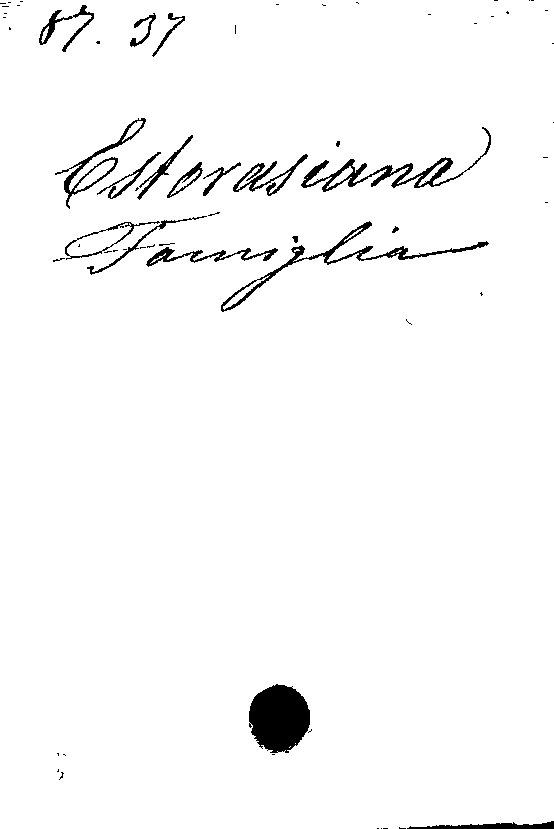 87. 37
Estorasiana
Famiglia